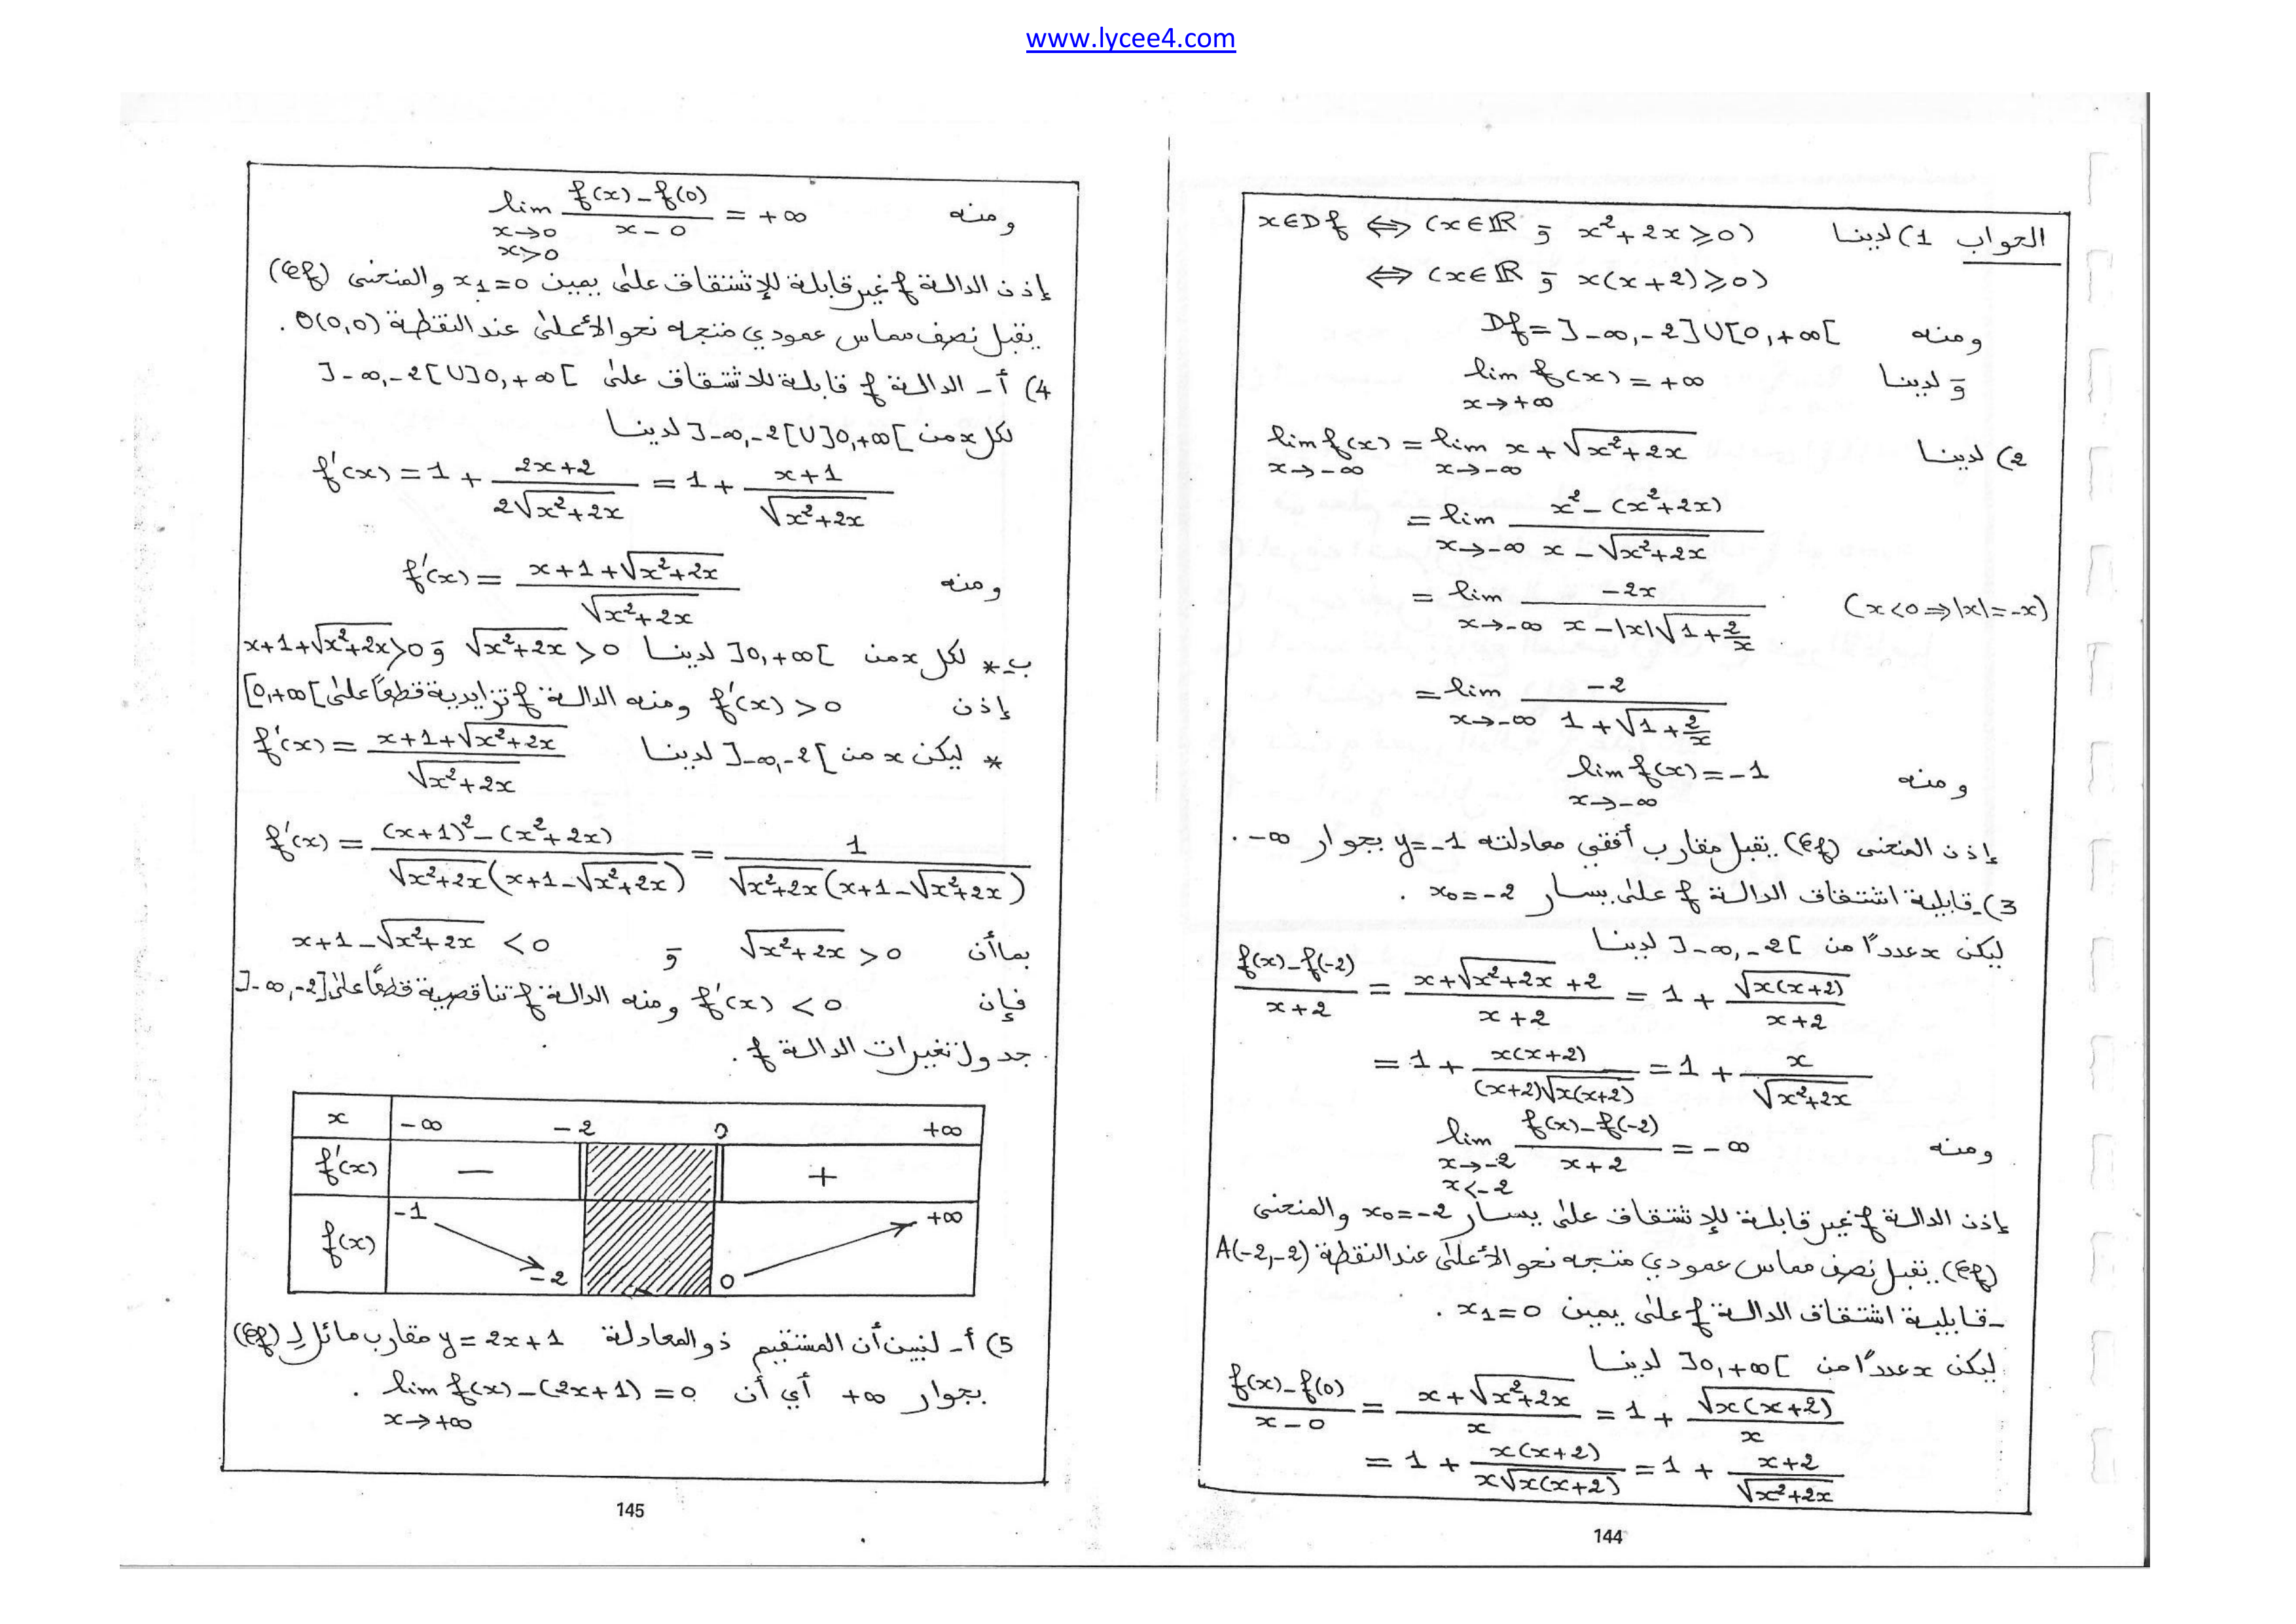 www.lycee4.com
الجواب 1) لدينا x∈Df ⇔ (x∈ℝ وَ x²+2x⩾0)
⇔ (x∈ℝ وَ x(x+2)⩾0)
ومنه Df = ]-∞,-2]∪[0,+∞[
وَ لدينا lim f(x) = +∞
x→+∞
2) لدينا lim f(x) = lim x+√(x²+2x)
x→-∞ x→-∞
= lim (x²-(x²+2x))/(x-√(x²+2x))
x→-∞
= lim (-2x)/(x-|x|√(1+2/x)) (x<0⇒|x|=-x)
x→-∞
= lim (-2)/(1+√(1+2/x))
x→-∞
ومنه lim f(x) = -1
x→-∞
إذن المنحنى (𝒞f) يقبل مقارب أفقي معادلته y=-1 بجوار -∞.
3)- قابلية اشتقاق الدالة f على يسار x₀=-2 .
ليكن x عددًا من ]-∞,-2[ لدينا
(f(x)-f(-2))/(x+2) = (x+√(x²+2x)+2)/(x+2) = 1+ √(x(x+2))/(x+2)
= 1+ (x(x+2))/((x+2)√(x(x+2))) = 1+ x/√(x²+2x)
ومنه lim (f(x)-f(-2))/(x+2) = -∞
x→-2
x<-2
إذن الدالة f غير قابلة للإشتقاق على يسار x₀=-2 والمنحنى
(𝒞f) يقبل نصف مماس عمودي متجه نحو الأعلى عند النقطة A(-2,-2)
- قابلية اشتقاق الدالة f على يمين x₁=0 .
ليكن x عددًا من ]0,+∞[ لدينا
(f(x)-f(0))/(x-0) = (x+√(x²+2x))/x = 1+ √(x(x+2))/x
= 1+ (x(x+2))/(x√(x(x+2))) = 1+ (x+2)/√(x²+2x)
144
ومنه lim (f(x)-f(0))/(x-0) = +∞
x→0
x>0
إذن الدالة f غير قابلة للإشتقاق على يمين x₁=0 والمنحنى (𝒞f)
يقبل نصف مماس عمودي متجه نحو الأعلى عند النقطة O(0,0) .
4) أ- الدالة f قابلة للاشتقاق على ]-∞,-2[∪]0,+∞[
لكل x من ]-∞,-2[∪]0,+∞[ لدينا
f'(x) = 1+ (2x+2)/(2√(x²+2x)) = 1+ (x+1)/√(x²+2x)
ومنه f'(x) = (x+1+√(x²+2x))/√(x²+2x)
ب-* لكل x من ]0,+∞[ لدينا √(x²+2x)>0 وَ x+1+√(x²+2x)>0
إذن f'(x)>0 ومنه الدالة f تزايدية قطعًا على [0,+∞[
* ليكن x من ]-∞,-2[ لدينا f'(x) = (x+1+√(x²+2x))/√(x²+2x)
f'(x) = ((x+1)²-(x²+2x))/(√(x²+2x)(x+1-√(x²+2x))) = 1/(√(x²+2x)(x+1-√(x²+2x)))
بما أن √(x²+2x)>0 وَ x+1-√(x²+2x)<0
فإن f'(x)<0 ومنه الدالة f تناقصية قطعًا على ]-∞,-2]
جدول تغيرات الدالة f .
x -∞ -2 0 +∞
f'(x) − +
f(x) -1 -2 0 +∞
5) أ- لنبين أن المستقيم ذو المعادلة y=2x+1 مقارب مائل لِـ (𝒞f)
بجوار +∞ أي أن lim f(x)-(2x+1) = 0 .
x→+∞
145